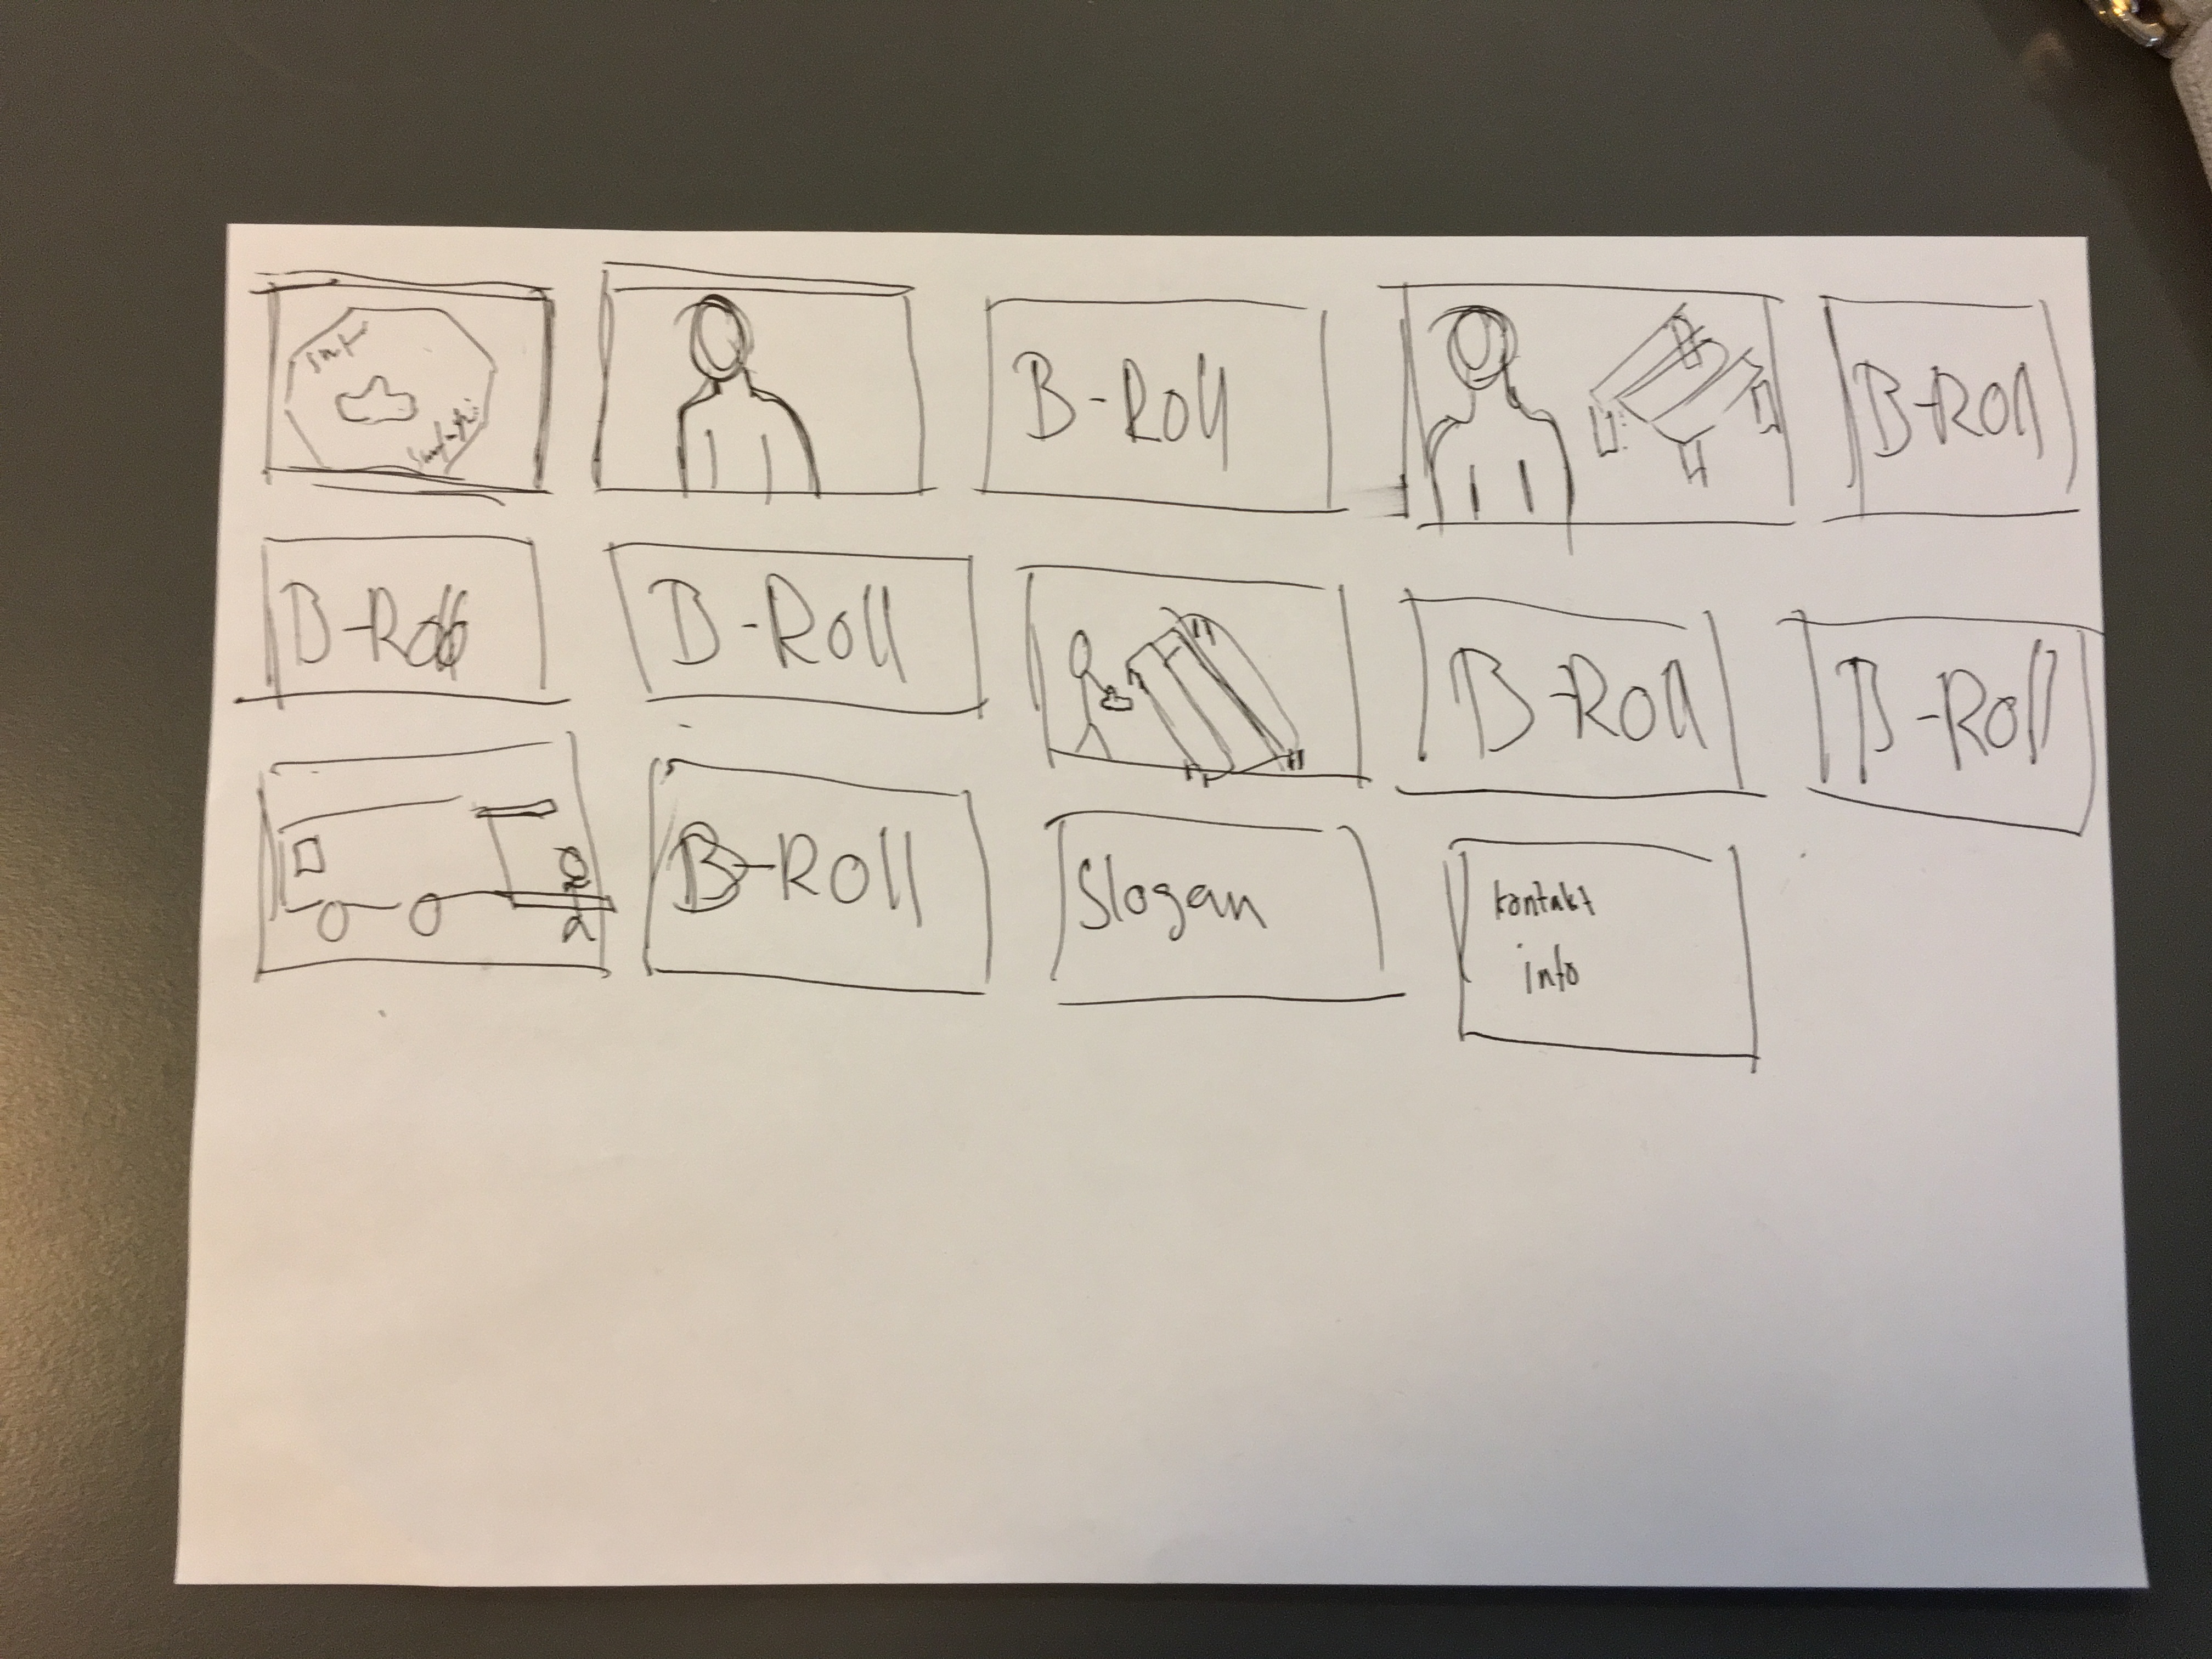 B-Roll
B-Roll
B-Roll
B-Roll
B-Roll
B-Roll
B-Roll
Slogan
kontakt
info